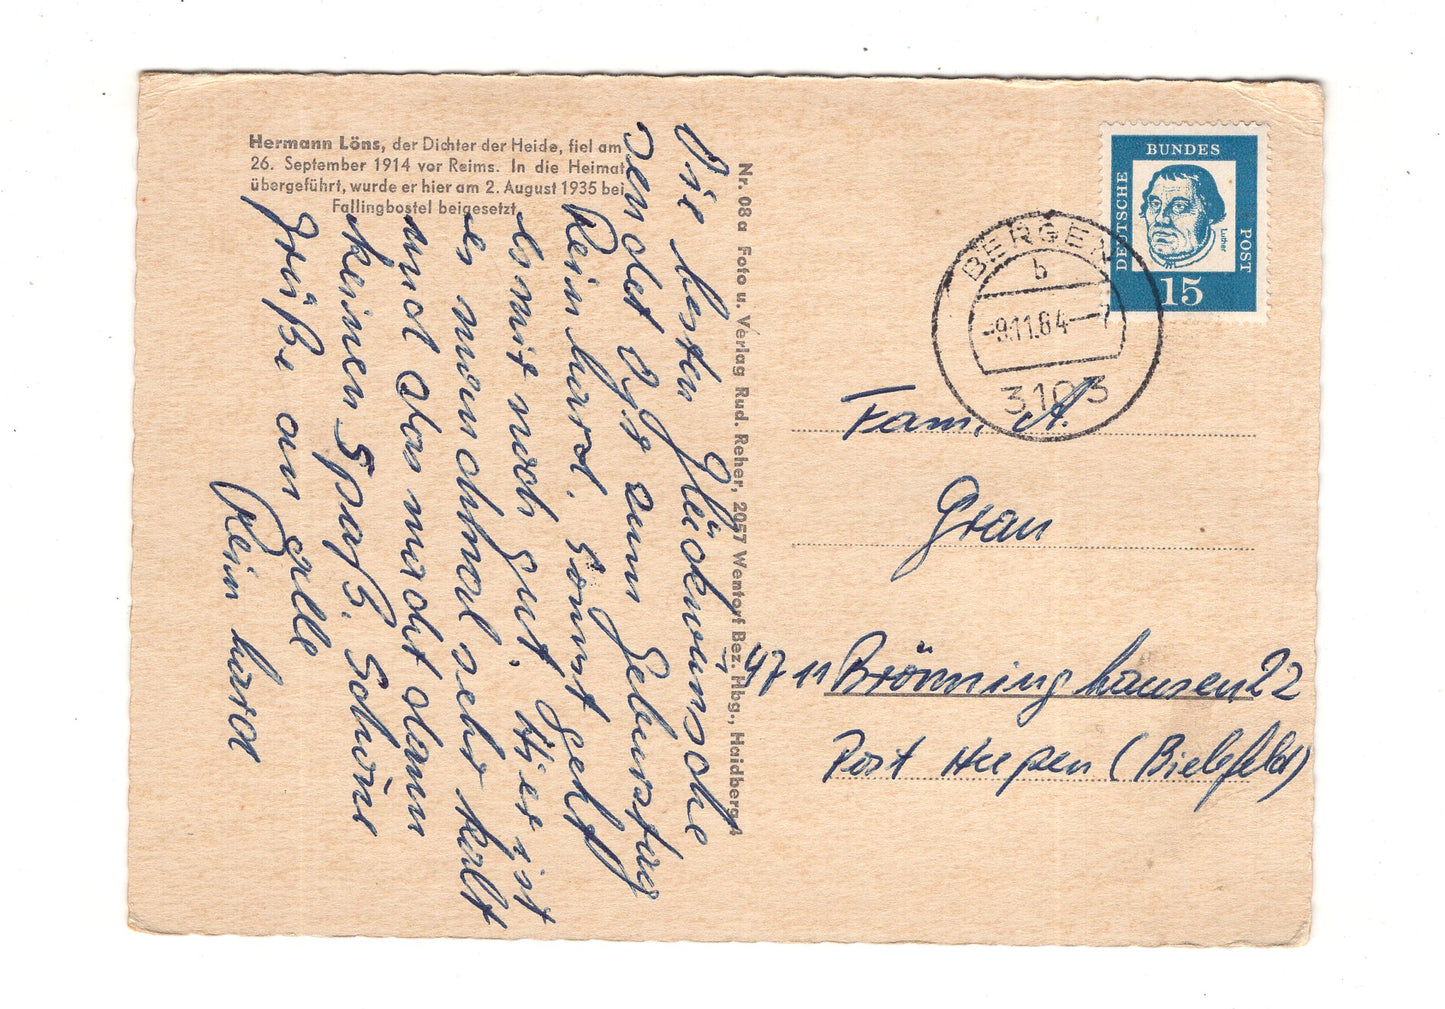 Hermann Löns, der Dichter der Heide, fiel am
26. September 1914 vor Reims. In die Heimat
übergeführt, wurde er hier am 2. August 1935 bei
Fallingbostel beigesetzt
Die besten Glückwünsche
sendet Dir zum Geburstag
Reinhard. Sonst geht
es mir noch gut. Hier ist
es manchmal sehr kalt
und das macht dann
keinen Spaß. Schöne
Grüße an alle
Reinhard
Nr. 08a Foto u. Verlag Rud. Reher, 2057 Wentorf Bez. Hbg., Haidberg 4
DEUTSCHE
BUNDES
POST
Luther
15
BERGEN
b
-9.11.64-7
3103
Fam. A.
Grau
4711 Brönninghausen 22
Post Heepen (Bielefeld)